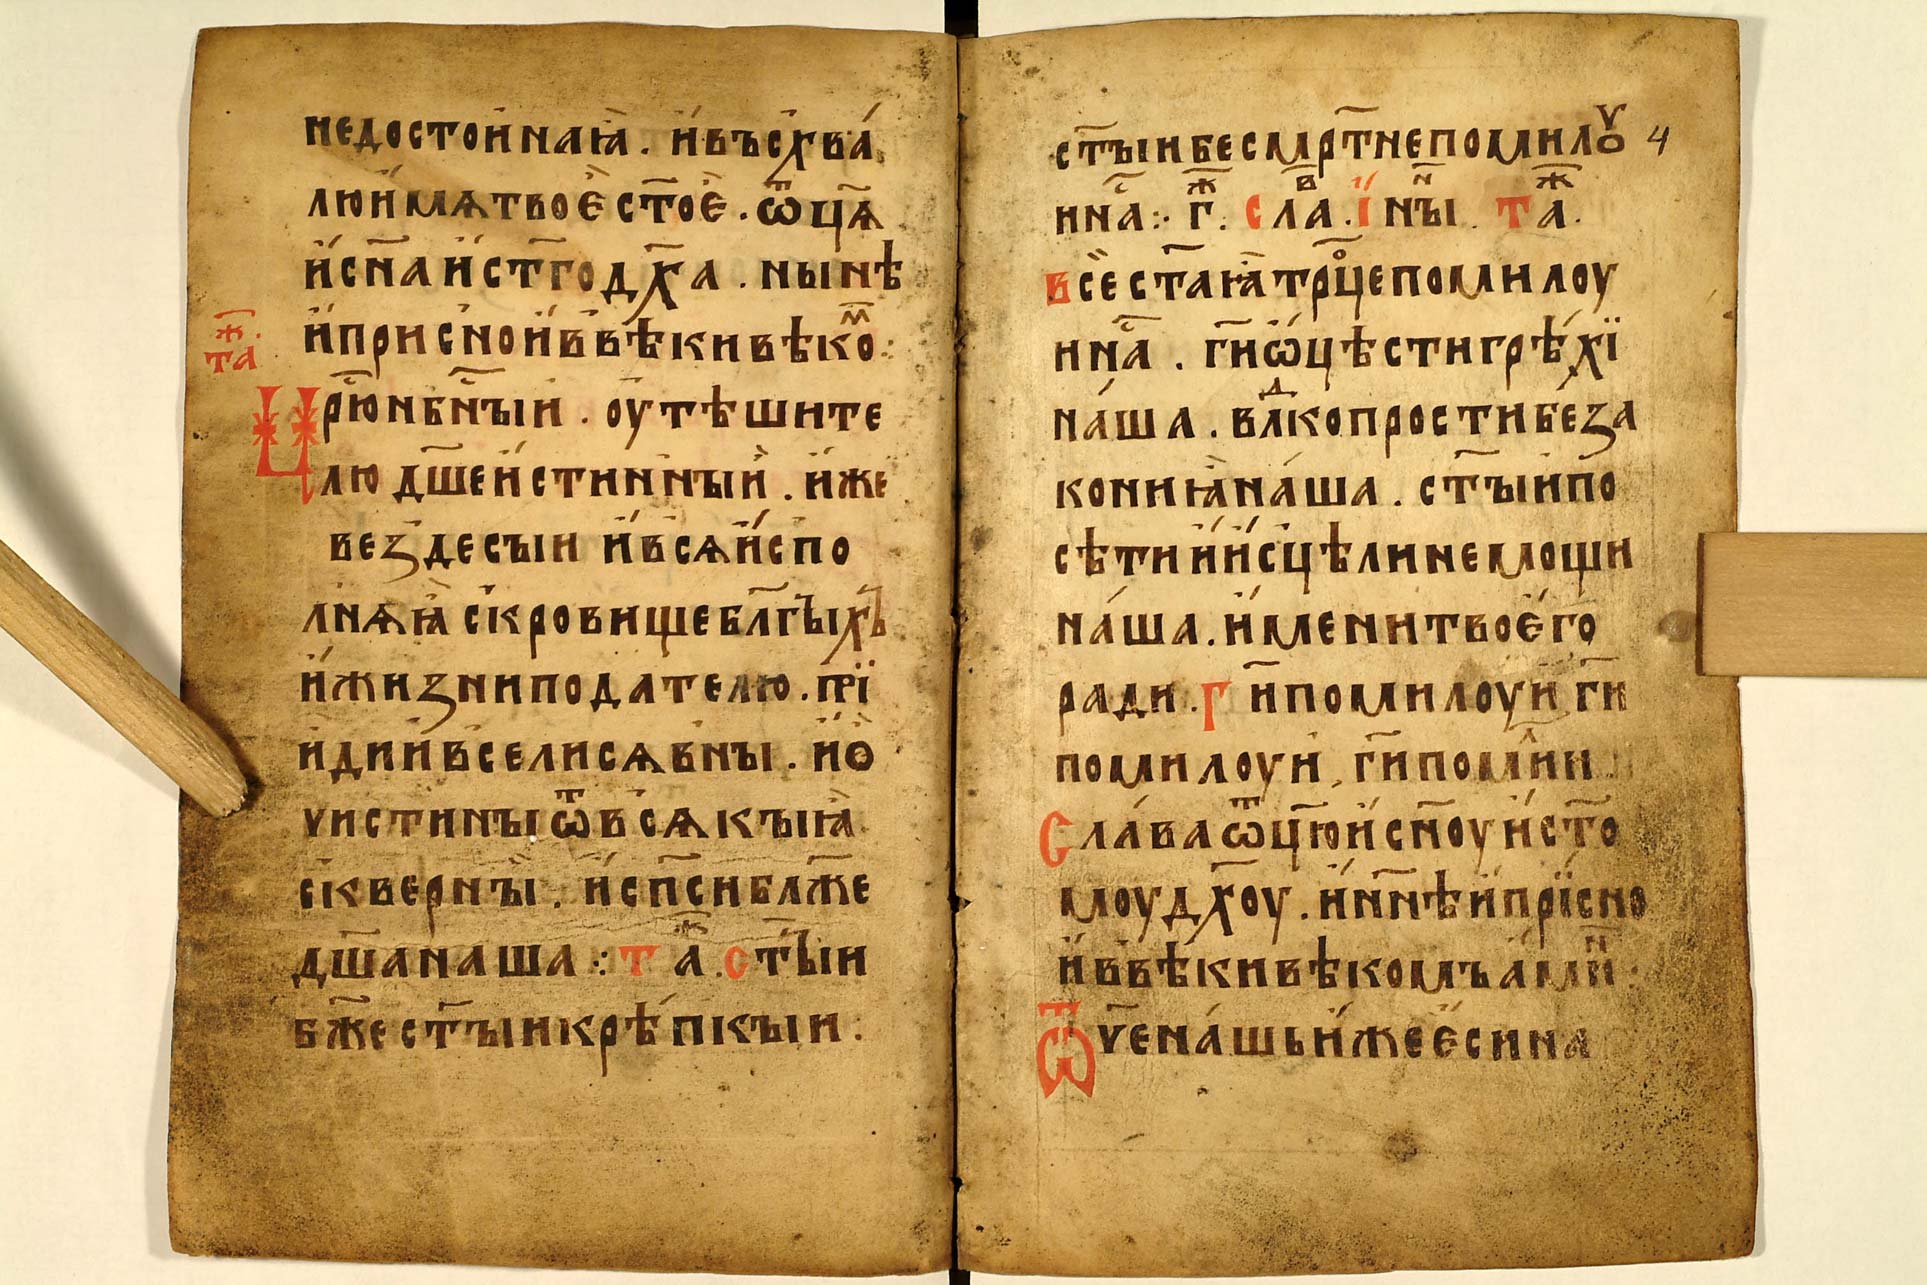 недостоинаꙗ . ивъсхва
люимѧтвоѐсто҃ѐ . ѿц҃ѧ
исн҃аист҃годх҃а . нынѣ
иприсноиввѣкивѣкоⷨ :
таⷤ
Црⷭ҇юнбⷭ҇ныи . оутѣшите
лю дш҃еистинныи . иже
вездесыи ивсѧиспо
лнѧꙗ скровищебл҃гыхъ
ижизниподателю . прїі
идиивселисѧвны . иѻ
чистиныѿвсѧкыꙗ
скверны . исп҃сиблж҃е
дш҃анаша : таⷤ . ст҃ыи
бж҃ест҃ыикрѣпкыи :
ст҃ыибесмрт҃непомилꙋ 4
инаⷭ : гⷤ : слаⷡ . інⷩы . таⷤ .
всест҃аꙗтрⷪ҇цепомилоу
инаⷭ . ги҃ѡцѣстигрѣхї
наша . влⷣкопростибеза
кониꙗнаша . ст҃ыипо
сѣтииисцѣлинемощи
наша . именитвоего
ради . Г ги҃помилоуи ги҃
помилоуи , ги҃помⷧии
Славаѿцю҃исн҃оуист҃о
моудх҃оу . инн҃ѣиприсно
иввѣкивѣкомъамиⷩ :
Ѿченашьижеесина